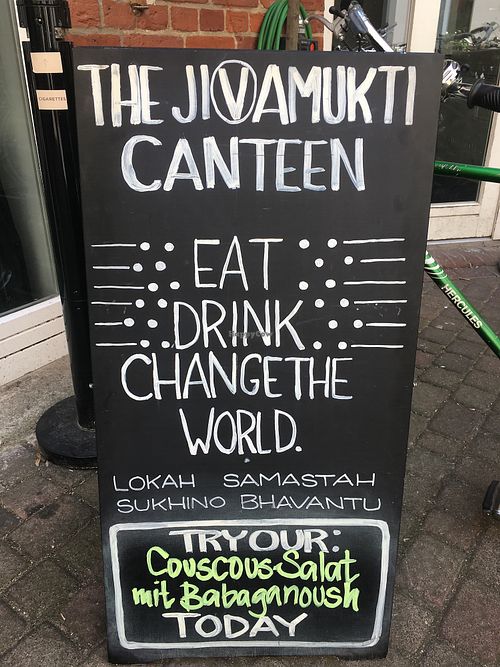 THE JIVAMUKTI
CANTEEN
EAT
DRINK
CHANGE THE
WORLD.
LOKAH SAMASTAH
SUKHINO BHAVANTU
TRY OUR:
Couscous-Salat
mit Babaganoush
TODAY
CIGARETTES
HERCULES